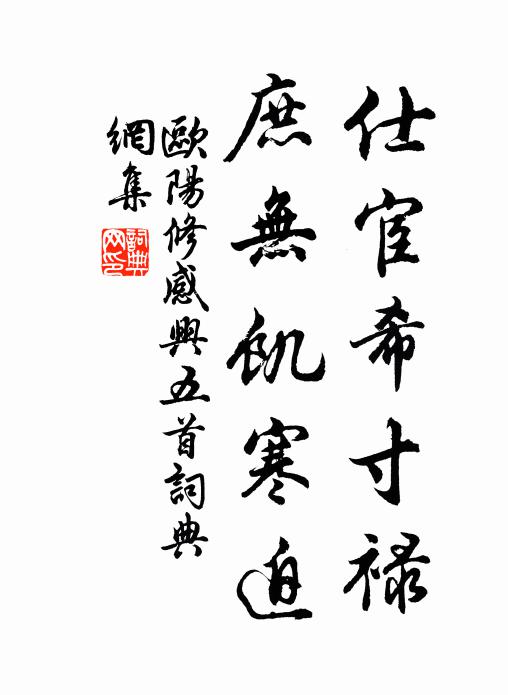 仕宦希寸祿
庶無飢寒迫
歐陽修感興五首詞典
網集
詞典
網印